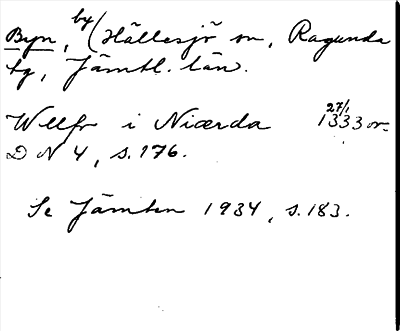 Byn, by (Hällesjö sn, Ragunda
tg, Jämtl. län.
Wllfr i Niærda 27/1 1333 or.
DN 4, s. 176.
Se Jämten 1934, s. 183.